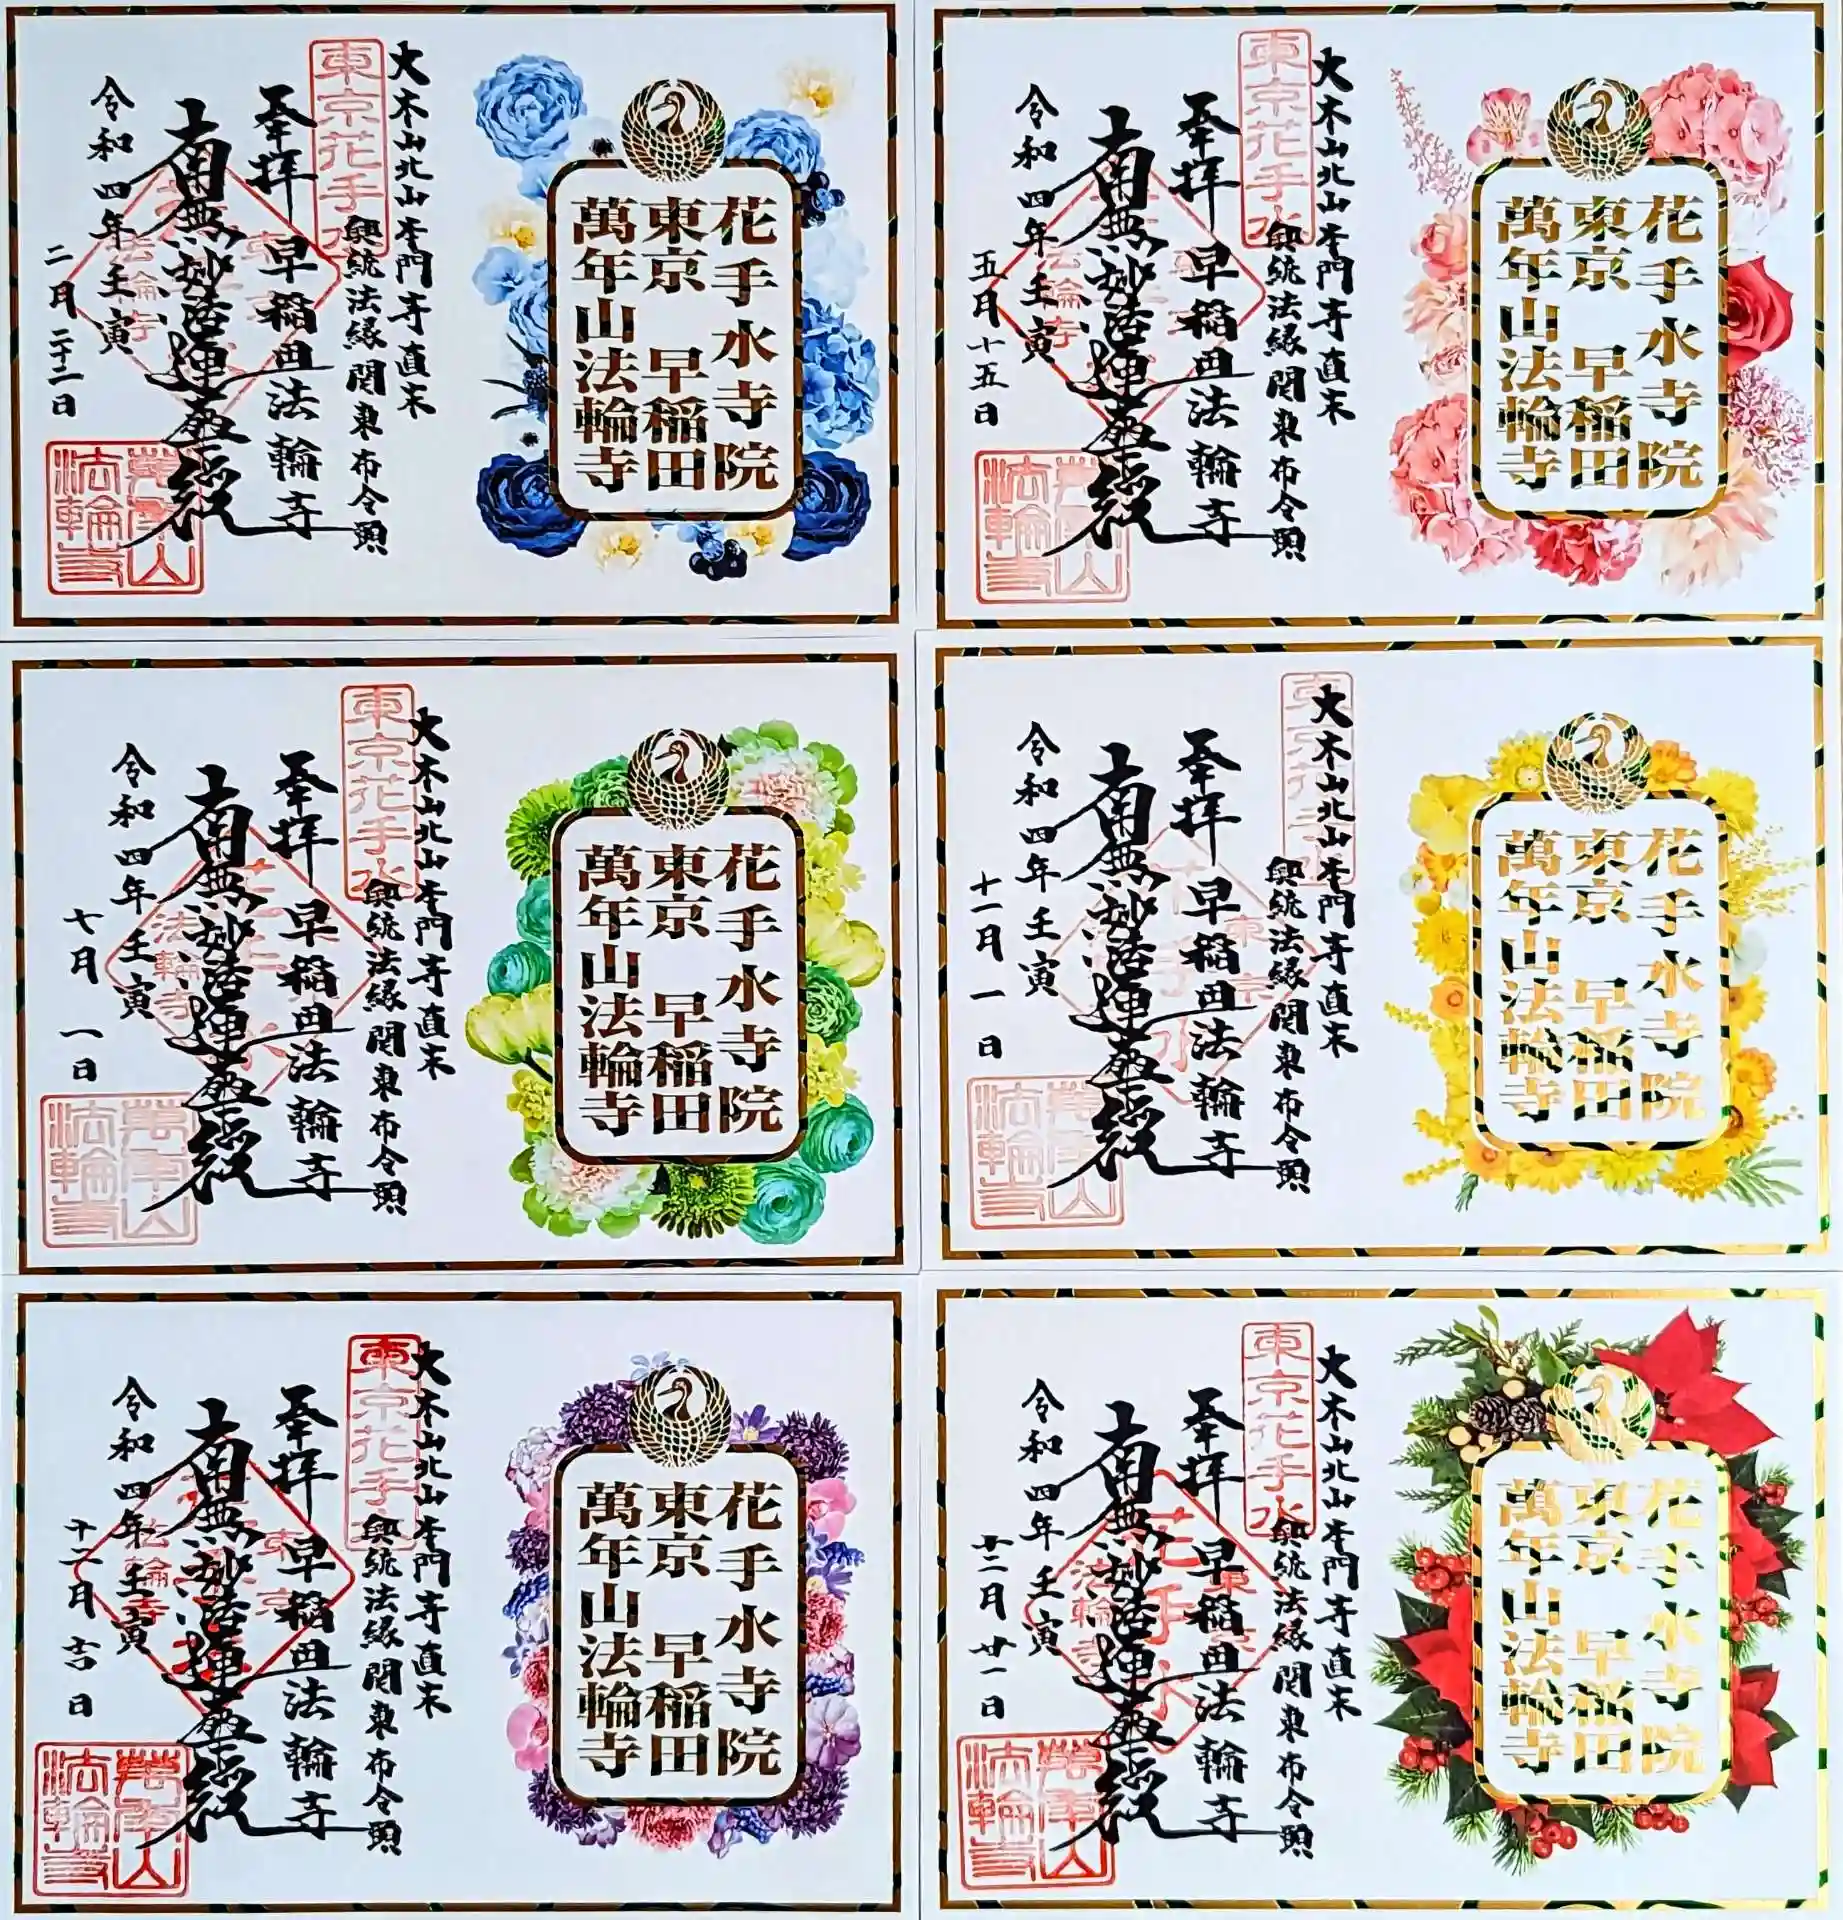 花手水寺院
東京 早稲田
萬年山法輪寺
大本山北山本門寺直末
興統法縁関東布令頭
東京花手水
奉拝 早稲田法輪寺
南無妙法蓮華経
令和四年壬寅
二月二十二日
萬年山
法輪寺
花手水寺院
東京 早稲田
萬年山法輪寺
大本山北山本門寺直末
興統法縁関東布令頭
東京花手水
奉拝 早稲田法輪寺
南無妙法蓮華経
令和四年壬寅
五月十五日
萬年山
法輪寺
花手水寺院
東京 早稲田
萬年山法輪寺
大本山北山本門寺直末
興統法縁関東布令頭
東京花手水
奉拝 早稲田法輪寺
南無妙法蓮華経
令和四年壬寅
七月一日
萬年山
法輪寺
花手水寺院
東京 早稲田
萬年山法輪寺
大本山北山本門寺直末
興統法縁関東布令頭
東京花手水
奉拝 早稲田法輪寺
南無妙法蓮華経
令和四年壬寅
十一月一日
萬年山
法輪寺
花手水寺院
東京 早稲田
萬年山法輪寺
大本山北山本門寺直末
興統法縁関東布令頭
東京花手水
奉拝 早稲田法輪寺
南無妙法蓮華経
令和四年壬寅
十二月吉日
萬年山
法輪寺
花手水寺院
東京 早稲田
萬年山法輪寺
大本山北山本門寺直末
興統法縁関東布令頭
東京花手水
奉拝 早稲田法輪寺
南無妙法蓮華経
東京
花手水
法輪寺
令和四年壬寅
十二月廿一日
萬年山
法輪寺